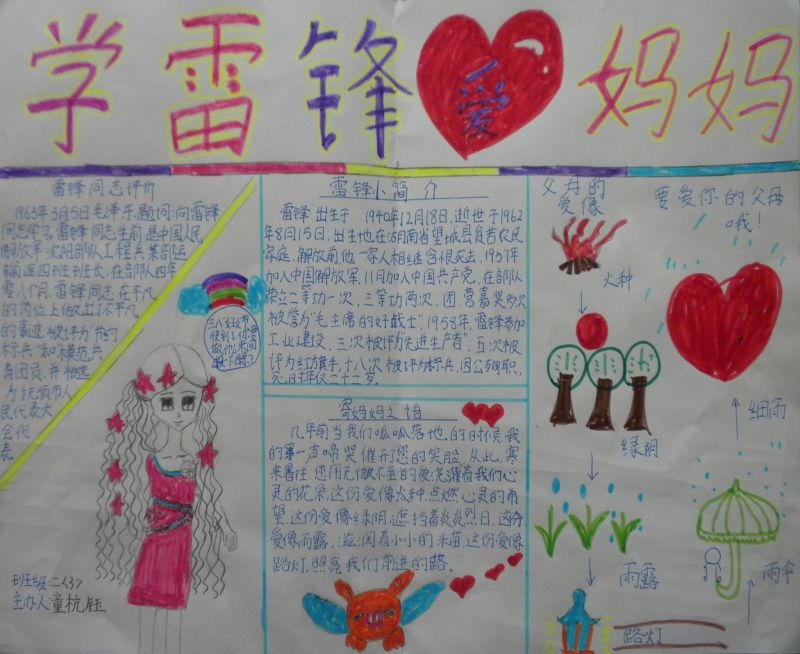 学雷锋爱妈妈
雷锋同志评价
1963年3月5日毛泽东题词:向雷锋
同志学习,雷锋同志生前是中国人民
解放军沈阳部队工程兵某部运
输连四班班长,在部队四年
零八个月,雷锋同志在平凡
的岗位上做出了不平凡
的事迹被评为"节约
标兵"和模范共
青团员,并被选
为抚顺市人
民代表大
会代
表
三八妇女节
快到了,你要
班级:二<3>
主办人:童杭钰
雷锋小简介
雷锋出生于1940年12月18日,逝世于1962
年8月15日,出生地在湖南省望城县贫苦农民
家庭,解放前他一家人相继含恨死去,1957年
加入中国解放军,11月加入中国共产党,在部队
荣立二等功一次,三等功两次,团营嘉奖多次
被誉为"毛主席的好战士",1958年,雷锋参加
工业建设,三次被评为先进生产者",五次被
评为红旗手,十八次被评为标兵,因公殉职,
死时年仅二十二岁。
寄妈妈之语
几年前当我们呱呱落地的时候,我
的第一声啼哭催开了您的笑脸,从此,寒
来暑往,您用无微不至的爱,浇灌着我们心
灵的花朵,这份爱像火种,点燃心灵的希
望,这份爱像绿阴,遮挡着炎炎烈日,这份
爱像雨露,滋润着小小的禾苗,这份爱像
路灯,照亮我们前进的路。
父母的
爱像
火种
绿阴
雨露
路灯
要爱你的父母
哦!
细雨
雨伞